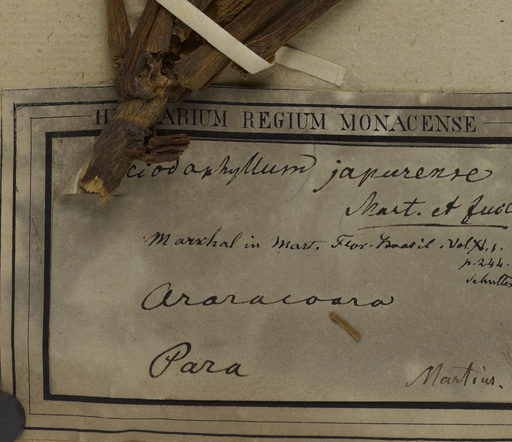 H ARIUM REGIUM MONACENSE
ciodophyllum japurense
Mart. et Zucc
Marchal in Mart. Flor. Brasil. Vol. XI. 1.
p. 244.
Araracoara
Para
Martius.